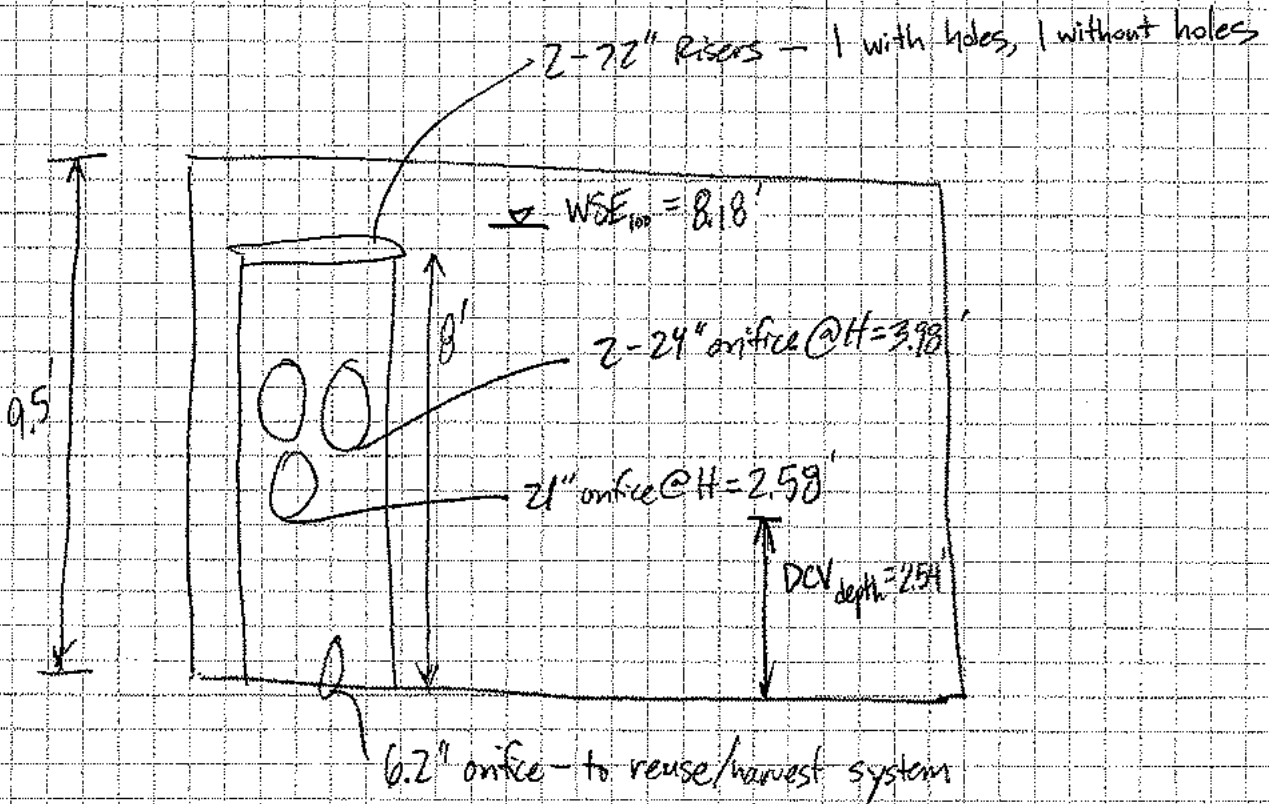 2-72" Risers - 1 with holes, 1 without holes
WSE₁₀₀ = 8.18'
8'
2-24" orifice @ H=3.98'
9.5'
21" orifice @ H=2.58'
DCV depth=2.54'
6.2" orifice - to reuse/harvest system